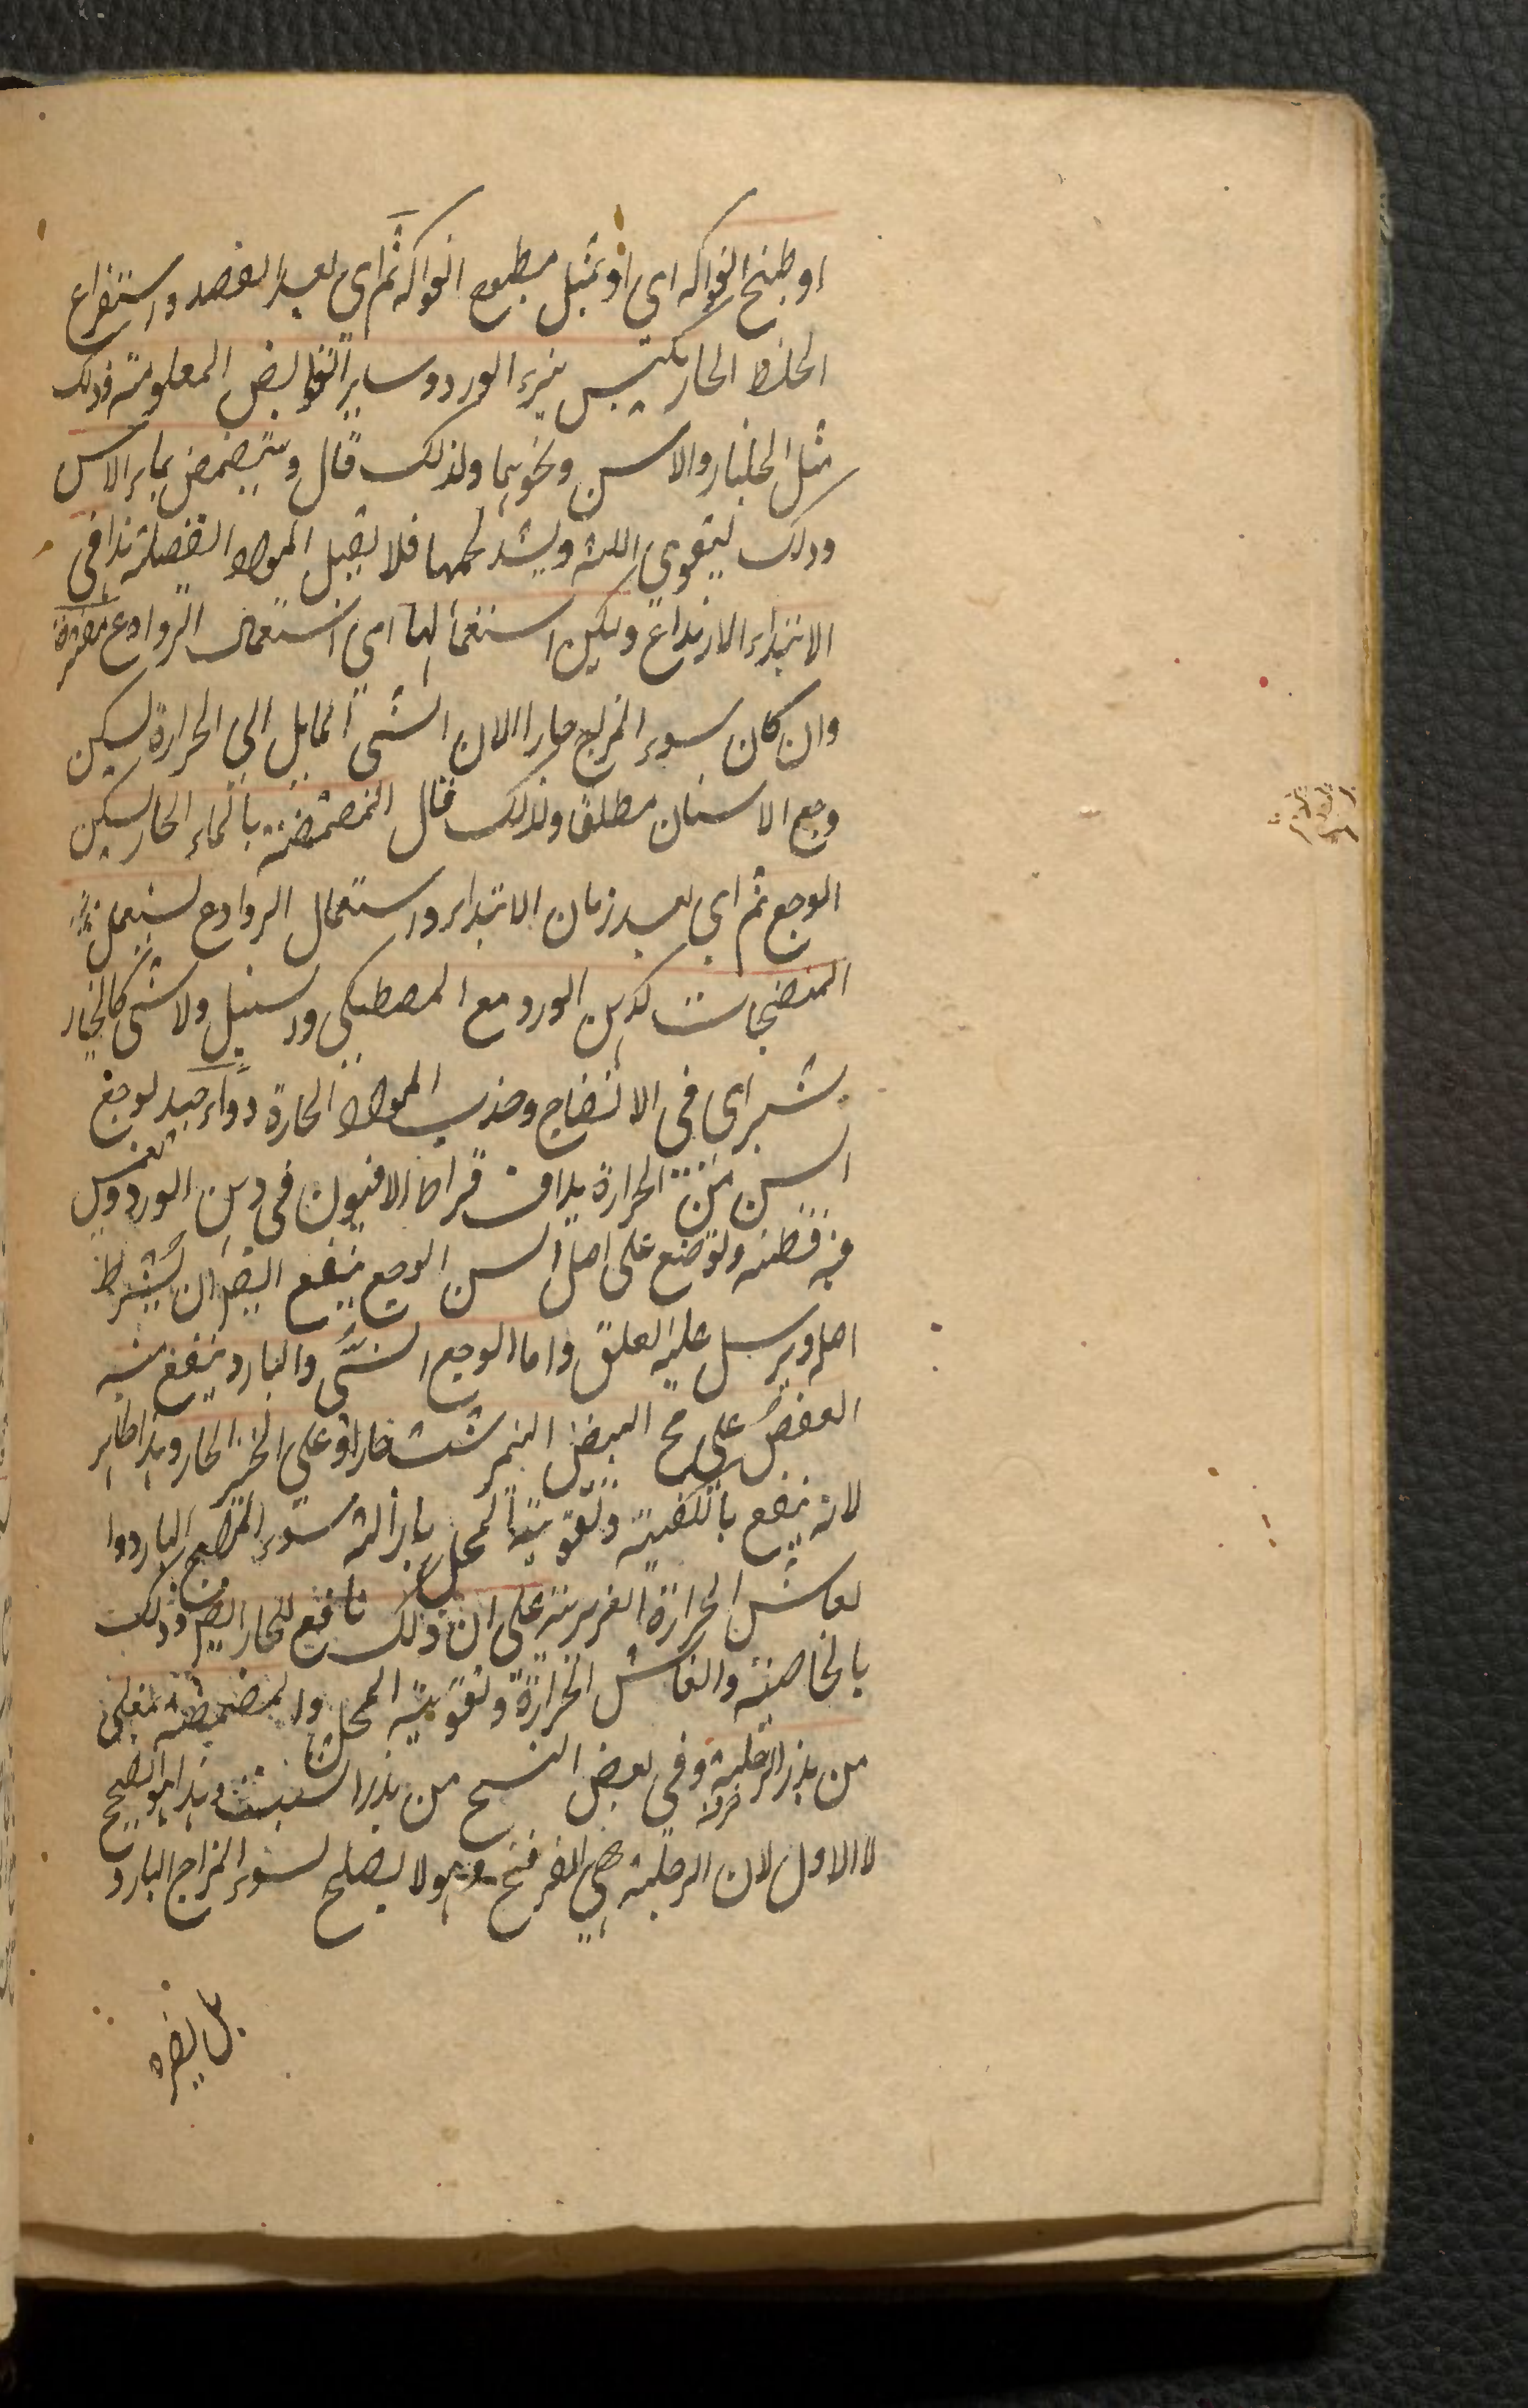 او طبخ الفواكه اى او بمثل مطبوخ الفواكه ثم اى بعد الفصد واستفراغ
الخلط الحار يكبس ببزر الورد وساير القوابض المعلومة وذلك
مثل الجلنار والاس ونحوهما ولذلك قال ويتمضمض بماء الاس
وذلك ليقوى اللثة ويشد لحمها فلا يقبل المواد الفضلية هذا فى
الابتداء لارتداع وليكن استعمالها اى استعمال الروادع مفترة
وان كان سوء المزاج حارا لان الشى المايل الى الحرارة يسكن
وجع الاسنان مطلقا ولذلك قال المضمضة بالماء الحار يسكن
الوجع ثم اى بعد زمان الابتداء واستعمال الروادع يستعمل
المنضجات كدهن الورد مع المصطكى والسنبل ولا شى كالخيار
شنبر اى فى الانضاج وجذب المواد الحارة دواء جيد لوجع
السن من الحرارة يداف قيراط الافيون فى دهن الورد ويغمس
فيه قطنه وتوضع على اصل السن الوجع ينفع ايضا ان يشرط
اصله ويرسل عليه العلق واما الوجع الشى والبارد ينفع منه
العض على مح البيض النيمرشت حارا او على الخبز الحار وهذا ظاهر
لانه ينفع بالكيفية وتقوية المحل بازالة سوء المزاج البارد وا
نعاش الحرارة الغريزية على ان ذلك نافع للحار ايضا وذلك
بالخاصية وانعاش الحرارة وتقوية المحل والمضمضة بمغلى
من بزر الرجلة وفى بعض النسخ من بزر الشبت وهذا هو الصحيح
لا الاول لان الرجلة هى الفرفخ وهو لا يصلح لسوء المزاج البارد
بل يضره